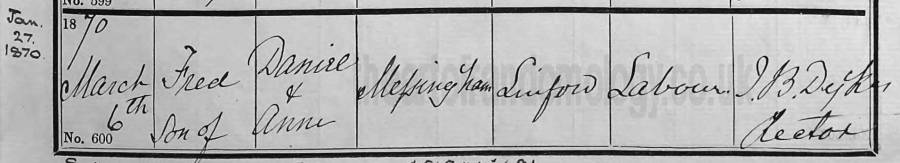 No. 599
Jan. 27. 1870.
1870
March 6th
No. 600
Fred
Son of
Daniel
&
Anne
Messingham
Linford
Labour.
J. B. Dykes
Rector